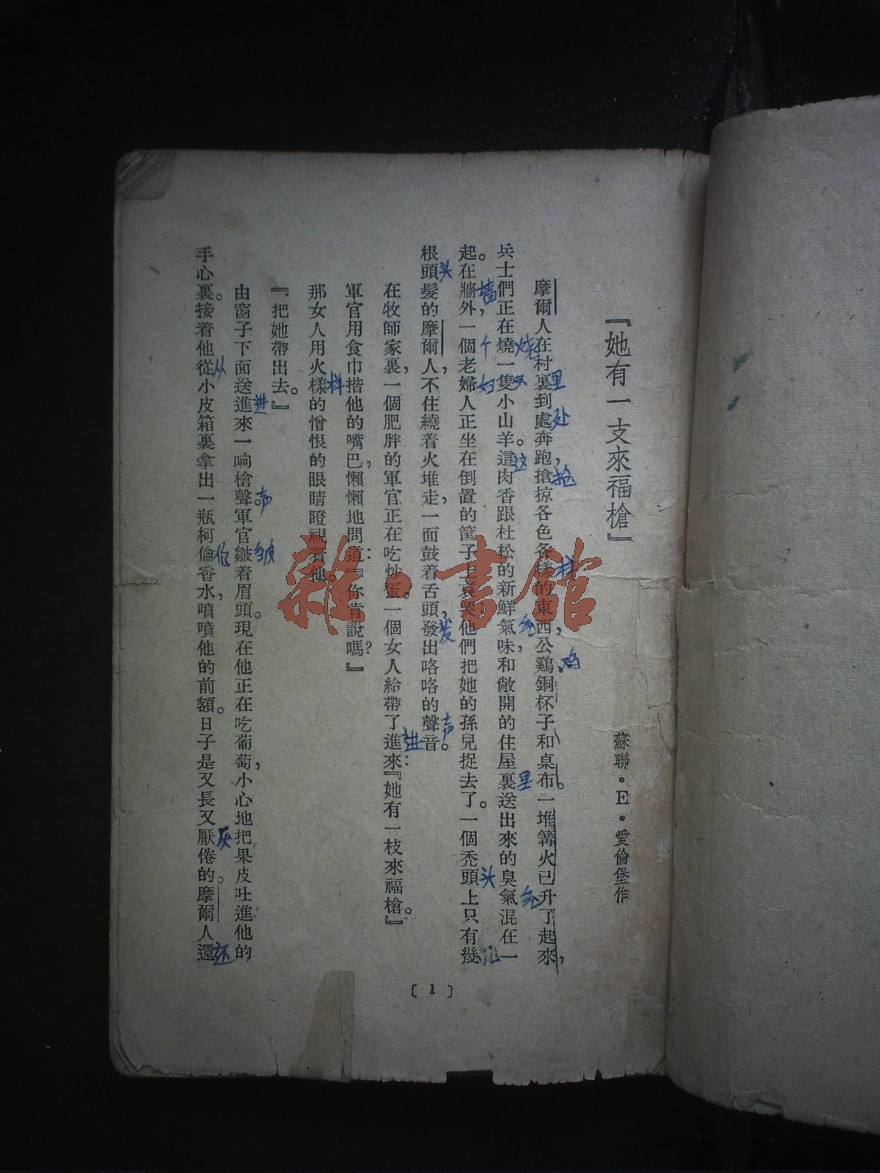 『她有一支來福槍』
蘇聯·E·愛倫堡作
摩爾人在村裏到處奔跑，搶掠各色各樣的東西，公鷄，銅杯子和桌布。一堆篝火已升了起來，
兵士們正在燒一隻小山羊。這肉香跟杜松的新鮮氣味和敞開的住屋裏送出來的臭氣混在一
起。在牆外，一個老婦人正坐在倒置的筐子上哀哭，他們把她的孫兒捉去了。一個禿頭上只有幾
根頭髮的摩爾人，不住繞着火堆走，一面鼓着舌頭，發出咯咯的聲音。
在牧師家裏，一個肥胖的軍官正在吃炒蛋。一個女人給帶了進來：『她有一枝來福槍。』
軍官用食巾揩他的嘴巴，懶懶地問道：『你肯說嗎？』
那女人用火樣的憎恨的眼睛瞪視着他。
『把她帶出去。』
由窗子下面送進來一响槍聲。軍官皺着眉頭。現在他正在吃葡萄，小心地把果皮吐進他的
手心裏。接着他從小皮箱裏拿出一瓶柯倫香水，噴噴他的前額。日子是又長又厭倦的。摩爾人還
〔1〕
里
处
抢
样
鸡
烧
双
这
气
里
气
墙
个
妇
头
头
发
声
进
样
进
声
皱
从
灰
还
雜·書館